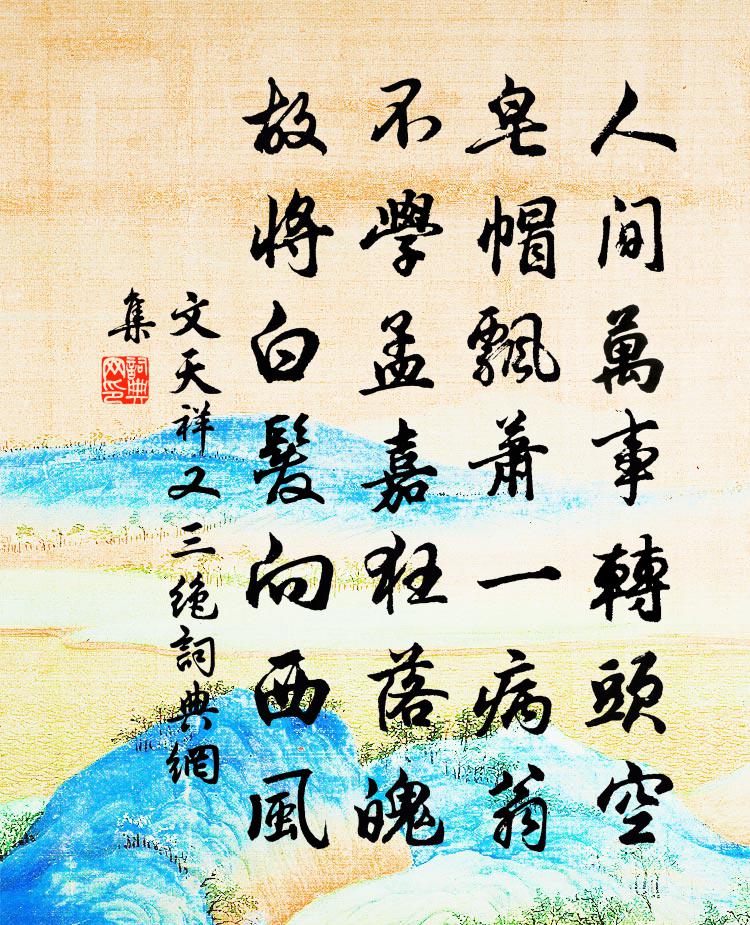 人間萬事轉頭空
皂帽飄蕭一病翁
不學孟嘉狂落魄
故將白髮向西風
文天祥又三絶詞典網
集
詞典
网印